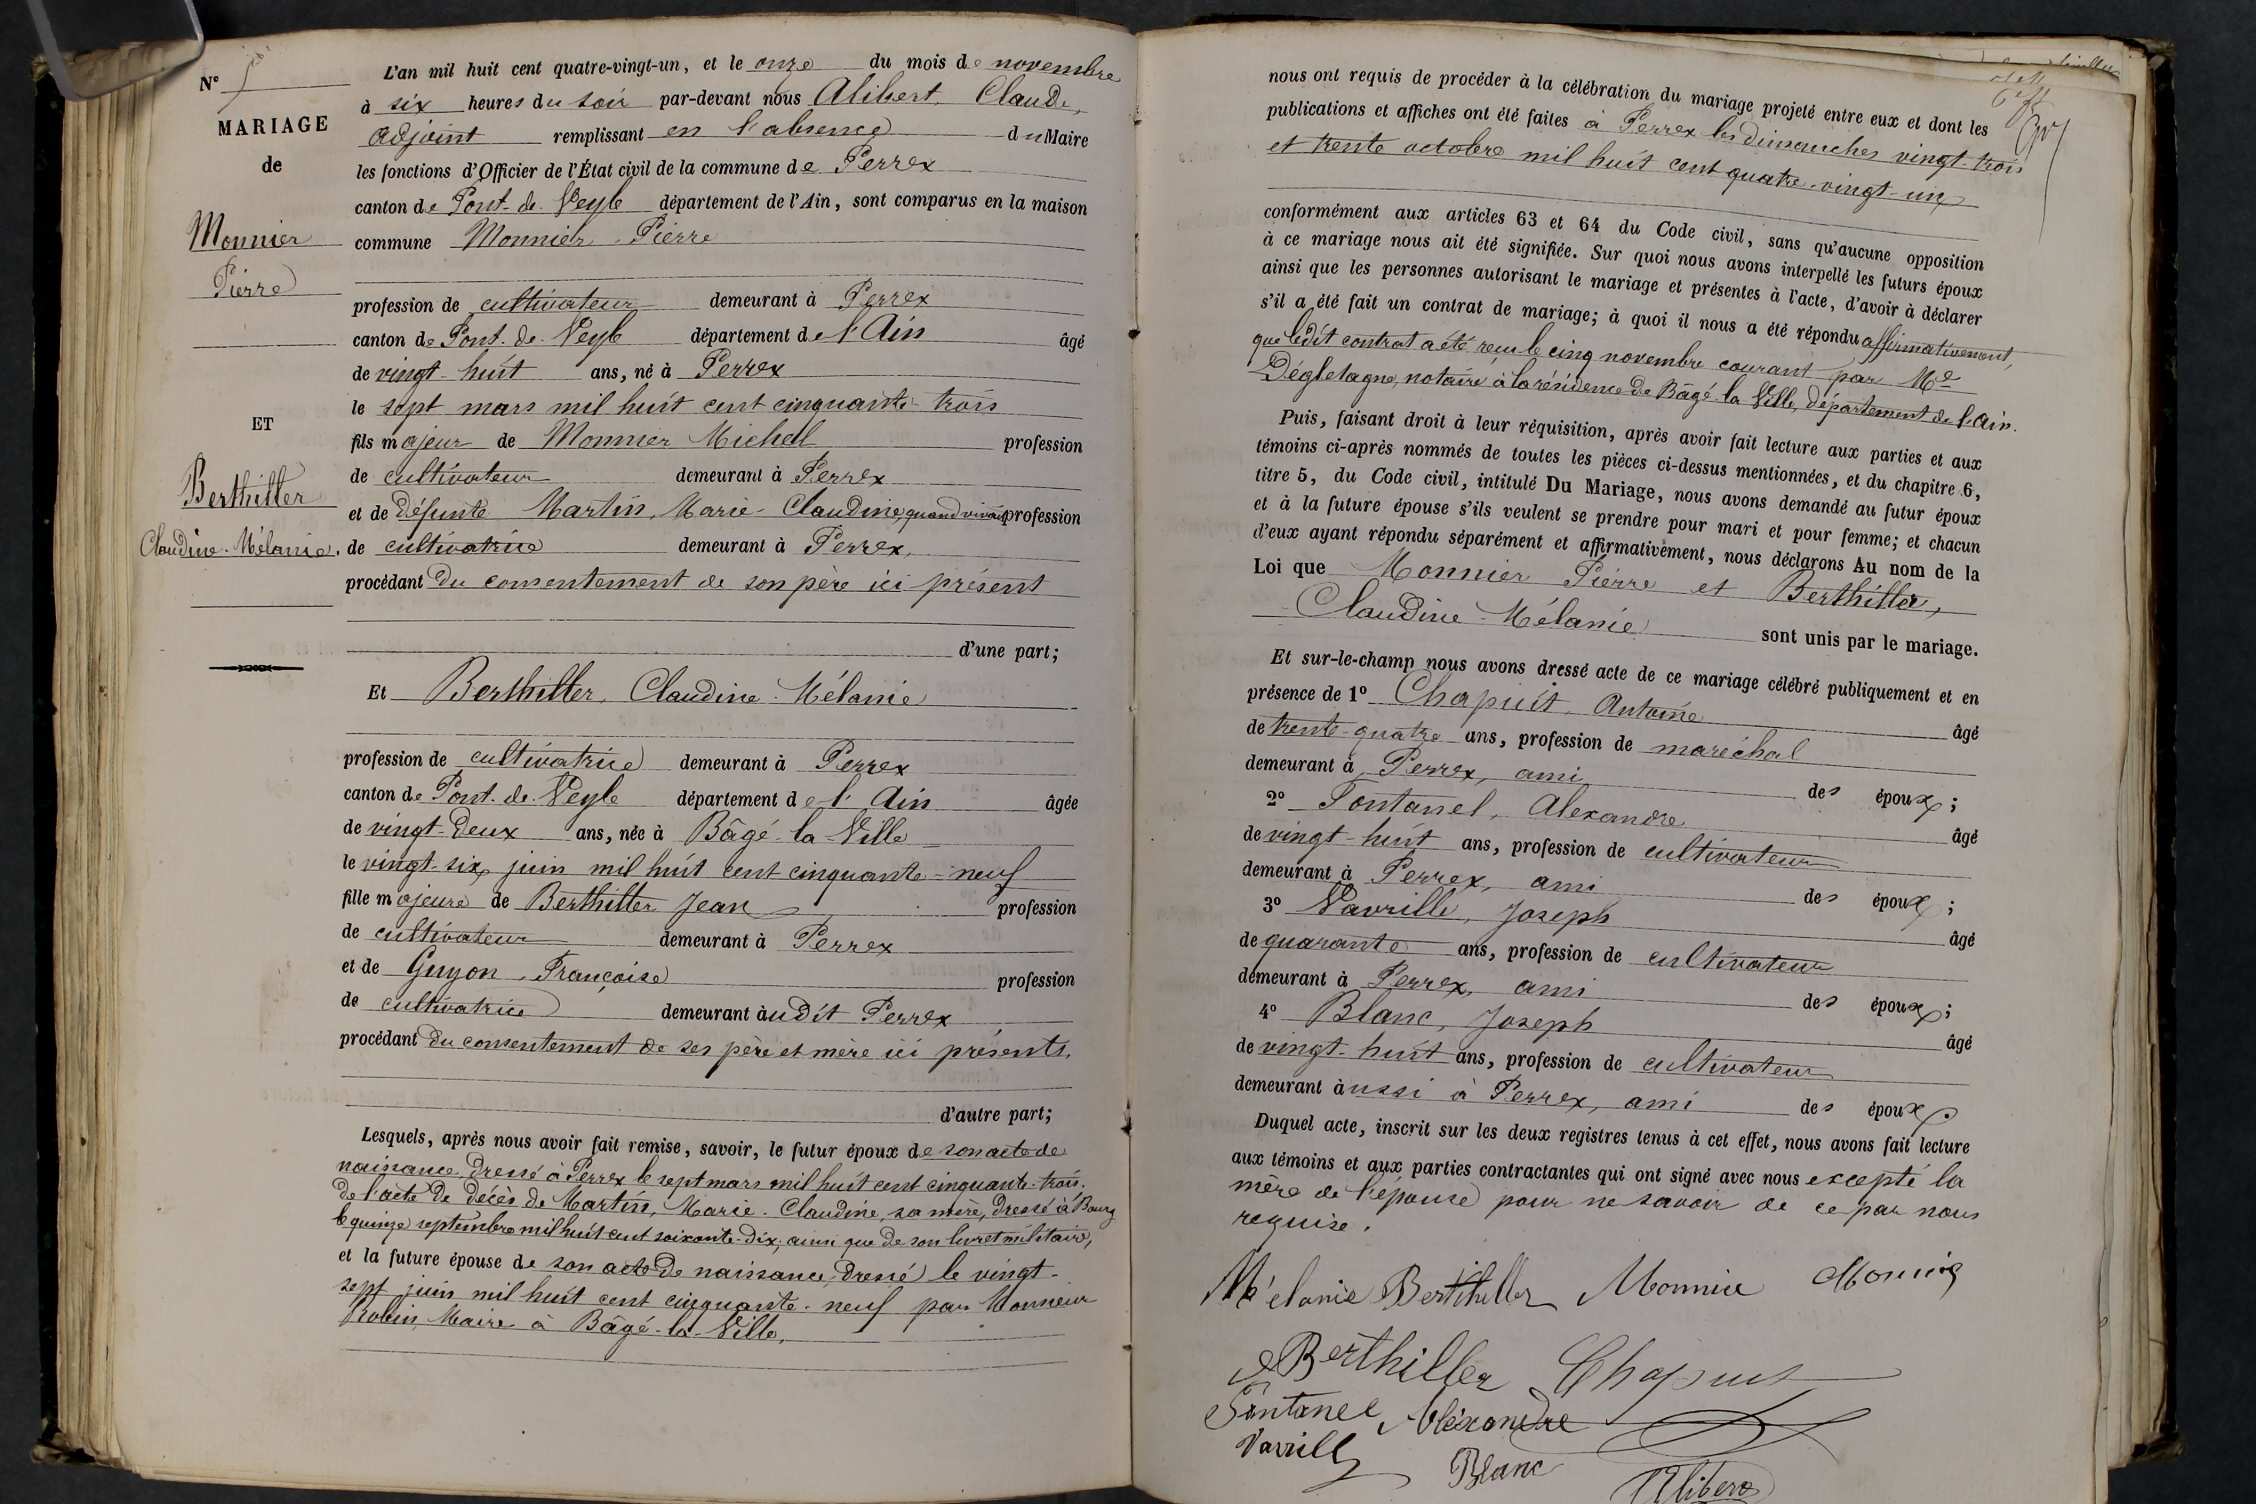 N°
MARIAGE
de
Monnier
Pierre
ET
Berthiller
Claudine-Mélanie.
L'an mil huit cent quatre-vingt-un, et le onze du mois de novembre
à six heures du soir par-devant nous Alibert, Claude,
adjoint remplissant en l'absence du Maire
les fonctions d'Officier de l'État civil de la commune de Perrex
canton de Pont-de-Veyle département de l'Ain, sont comparus en la maison
commune Monnier Pierre
profession de cultivateur demeurant à Perrex
canton de Pont-de-Veyle département de l'Ain âgé
de vingt-huit ans, né à Perrex
le sept mars mil huit cent cinquante-trois
fils majeur de Monnier Michel profession
de cultivateur demeurant à Perrex
et de défunte Martin, Marie-Claudine, quand vivait profession
de cultivatrice demeurant à Perrex,
procédant du consentement de son père ici présent
d'une part;
Et Berthiller, Claudine-Mélanie
profession de cultivatrice demeurant à Perrex
canton de Pont-de-Veyle département de l'Ain âgée
de vingt-deux ans, née à Bâgé-la-Ville
le vingt-six juin mil huit cent cinquante-neuf
fille majeure de Berthiller Jean profession
de cultivateur demeurant à Perrex
et de Guyon, Françoise profession
de cultivatrice demeurant àudit Perrex
procédant du consentement de ses père et mère ici présents,
d'autre part;
Lesquels, après nous avoir fait remise, savoir, le futur époux de son acte de
naissance, dressé à Perrex le sept mars mil huit cent cinquante-trois.
de l'acte de décès de Martin, Marie-Claudine, sa mère, dressé à Bourg
le quinze septembre mil huit cent soixante-dix, ainsi que de son livret militaire,
et la future épouse de son acte de naissance, dressé le vingt-
sept juin mil huit cent cinquante-neuf par Monsieur
Robin, Maire à Bâgé-la-Ville,
nous ont requis de procéder à la célébration du mariage projeté entre eux et dont les
publications et affiches ont été faites à Perrex les dimanches vingt-trois
et trente octobre mil huit cent quatre-vingt-un
conformément aux articles 63 et 64 du Code civil, sans qu'aucune opposition
à ce mariage nous ait été signifiée. Sur quoi nous avons interpellé les futurs époux
ainsi que les personnes autorisant le mariage et présentes à l'acte, d'avoir à déclarer
s'il a été fait un contrat de mariage; à quoi il nous a été répondu affirmativement,
que ledit contrat a été reçu le cinq novembre courant par Me
Dégletagne, notaire à la résidence de Bâgé-la-Ville, département de l'Ain.
Puis, faisant droit à leur réquisition, après avoir fait lecture aux parties et aux
témoins ci-après nommés de toutes les pièces ci-dessus mentionnées, et du chapitre 6,
titre 5, du Code civil, intitulé Du Mariage, nous avons demandé au futur époux
et à la future épouse s'ils veulent se prendre pour mari et pour femme; et chacun
d'eux ayant répondu séparément et affirmativement, nous déclarons Au nom de la
Loi que Monnier Pierre et Berthiller,
Claudine-Mélanie sont unis par le mariage.
Et sur-le-champ nous avons dressé acte de ce mariage célébré publiquement et en
présence de 1° Chapuit, Antoine âgé
de trente-quatre ans, profession de maréchal
demeurant à Perrex, ami des époux;
2° Fontanel, Alexandre âgé
de vingt-huit ans, profession de cultivateur
demeurant à Perrex, ami des époux;
3° Vavrille, Joseph âgé
de quarante ans, profession de cultivateur
demeurant à Perrex, ami des époux;
4° Blanc, Joseph âgé
de vingt-huit ans, profession de cultivateur
demeurant àussi à Perrex, ami des époux.
Duquel acte, inscrit sur les deux registres tenus à cet effet, nous avons fait lecture
aux témoins et aux parties contractantes qui ont signé avec nous excepté la
mère de l'épouse pour ne savoir de ce par nous
requise.
Mélanie Berthiller Monnier Monnier
Berthiller Chapuit
Fontanel Aléxandre
Vavrille Blanc
Alibert